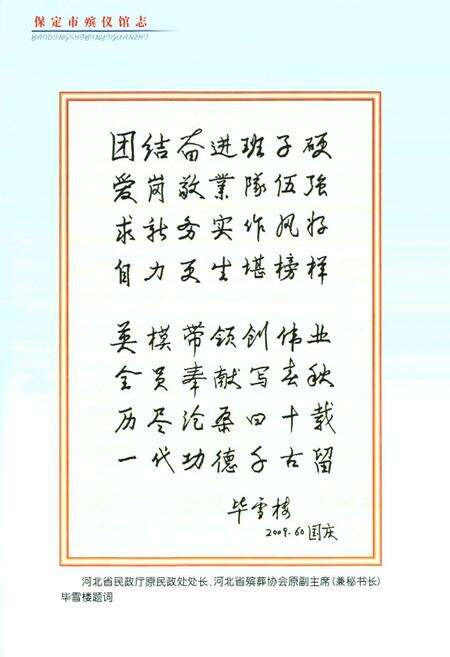 保定市殡仪馆志
BAODINGSHIBINYIGUANZHI
团结奋进班子硬
爱岗敬業隊伍強
求新务实作风好
自力更生堪榜样
英模带领创伟业
全员奉献写春秋
历尽沧桑四十载
一代功德千古留
毕雪楼
2009.60国庆
河北省民政厅原民政处处长、河北省殡葬协会原副主席(兼秘书长)
毕雪楼题词